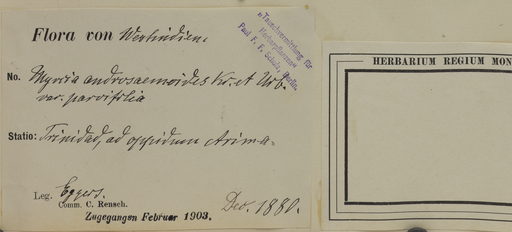 Flora von Westindien.
„Tauschvermittlung für
Herbarpflanzen"
Paul F. F. Schulz, Berlin.
No. Myrcia androsaemoides Kr. et Urb.
var. parvifolia
Statio: Trinidad, ad oppidum Arima.
Leg. Eggers. Dec. 1880.
Comm. C. Rensch.
Zugegangen Februar 1903.
HERBARIUM REGIUM MON